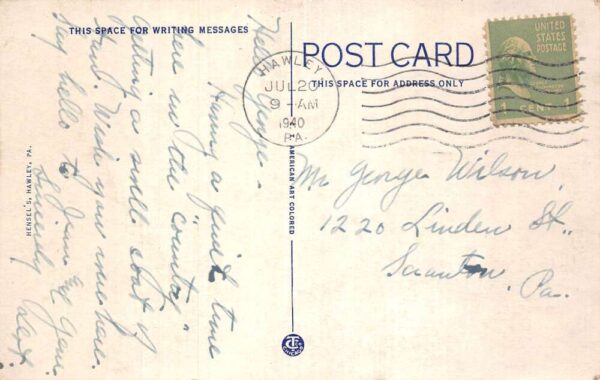 THIS SPACE FOR WRITING MESSAGES
Hello George -
Having a quiet time
here in the "country"
getting a swell coat of
tan. Wish you were here.
Say hello to Jim
Sincerely
HENSEL'S, HAWLEY, PA.
"AMERICAN ART COLORED
CHICAGO
POST CARD
THIS SPACE FOR ADDRESS ONLY
HAWLEY
JUL 20
9 - AM
1940
PA.
UNITED
STATES
POSTAGE
1 CENT 1
Mr George Wilson,
1220 Linden St.,
Scranton,
Pa.